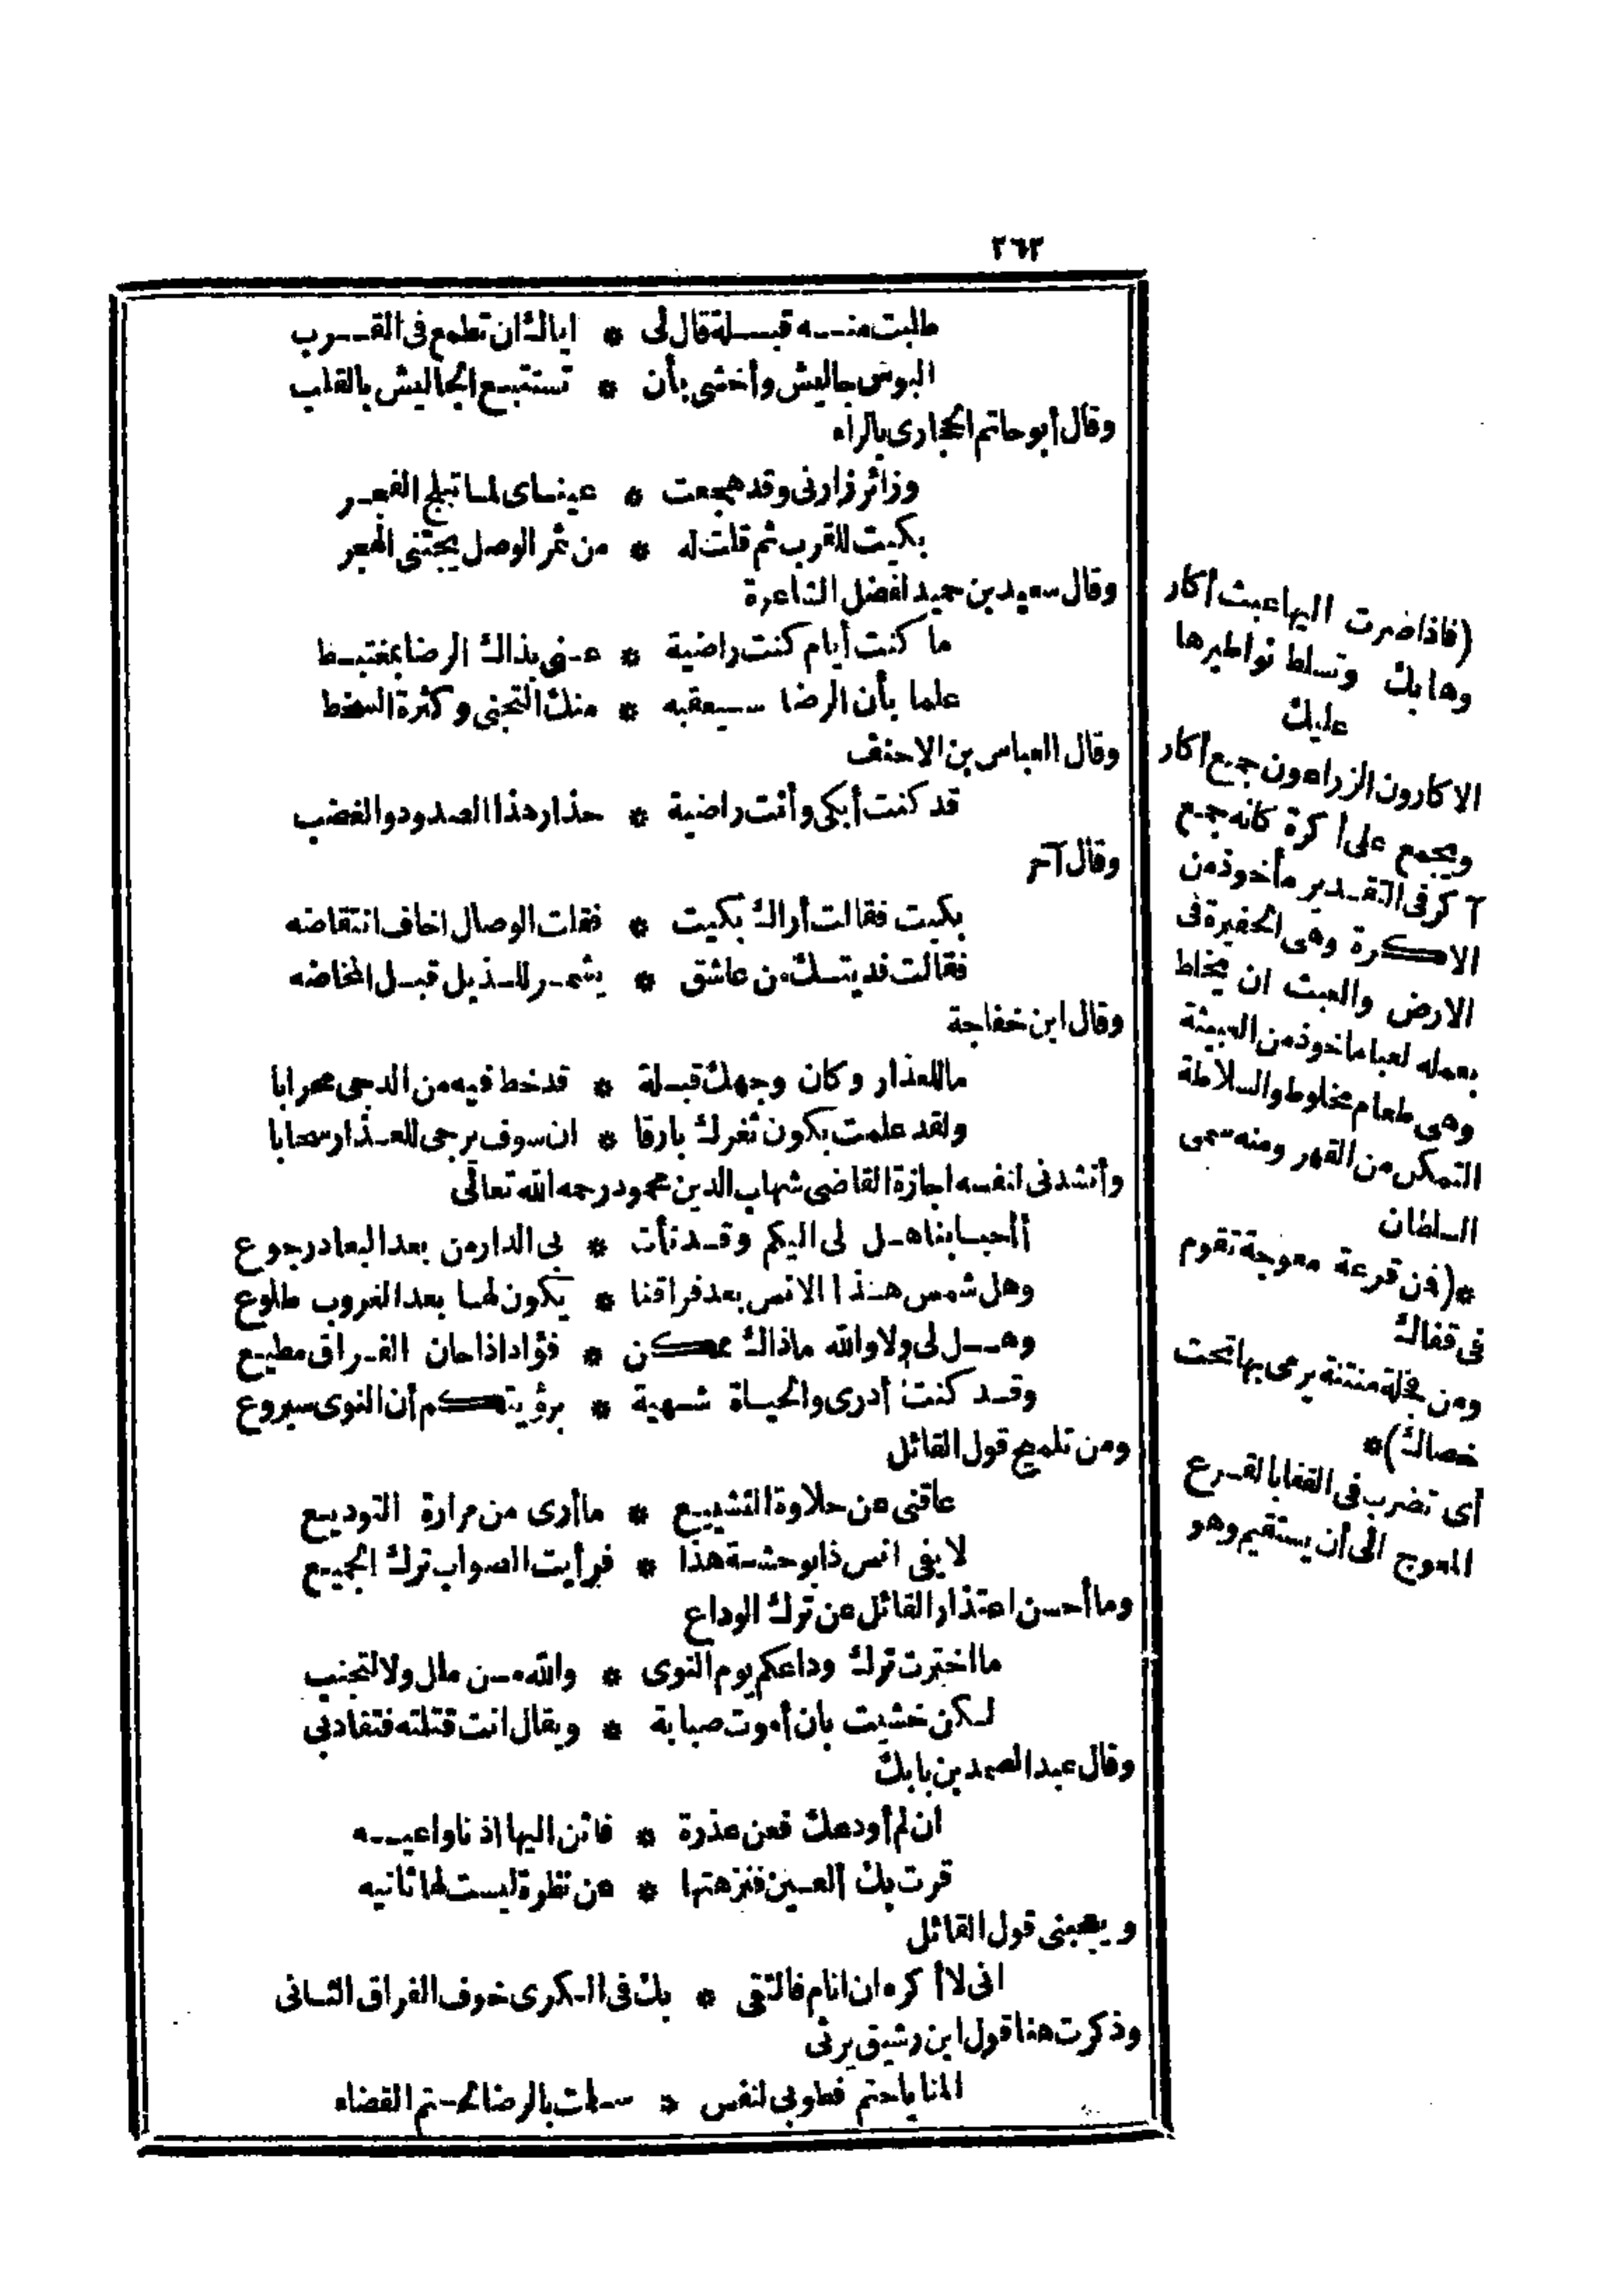 ٣٦٣
طلبت منه قبلة قال لى * اياك ان تطمع فى القرب
البوس جاليش وأخشى بأن * تستتبع الجاليش بالقلب
وقال أبو حاتم الحجارى بالراء
وزائر زارنى وقد هجعت * عيناى لما تبلج الفجر
بكيت للقرب ثم قلت له * من ثمر الوصل يجتنى الهجر
وقال سعيد بن حميد لفضل الشاعرة
ما كنت أيام كنت راضية * عنى بذاك الرضا بمغتبط
علما بأن الرضا سيعقبه * منك التجنى وكثرة السخط
وقال العباس بن الاحنف
قد كنت أبكى وأنت راضية * حذار هذا الصدود والغضب
وقال آخر
بكيت فقالت أراك بكيت * فقلت الوصال اخاف انتقاضه
فقالت فديتك من عاشق * يشمر للذيل قبل المخاضه
وقال ابن خفاجة
ما للعذار وكان وجهك قبلة * قد خط فيه من الدجى محرابا
ولقد علمت بكون ثغرك بارقا * ان سوف يرجى للعذار سحابا
وأنشدنى لنفسه اجازة القاضى شهاب الدين محمود رحمه الله تعالى
أأحبابنا هل لى اليكم وقد نأت * بى الدار من بعد البعاد رجوع
وهل شمس هذا الانس بعد فراقنا * يكون لها بعد الغروب طلوع
وهل لى ولا والله ماذاك ممكن * فؤاد اذا حان الفراق مطيع
وقد كنت أدرى والحياة شهية * برؤيتكم أن النوى سيروع
ومن تلميح قول القائل
عاقنى عن حلاوة التشييع * ما أرى من مرارة التوديع
لا يفى انس ذا بوحشة هذا * فرأيت الصواب ترك الجميع
وما أحسن اعتذار القائل عن ترك الوداع
ما اخترت ترك وداعكم يوم النوى * والله من ملل ولا لتجنب
لكن خشيت بان أموت صبابة * ويقال انت قتلته فتقادبى
وقال عبد الصمد بن بابك
ان لم أودعك فعن عذرة * فاثن اليها اذنا واعيه
قرت بك العين فنزهتها * عن نظرة ليست لها ثانيه
ويعجبنى قول القائل
انى لأأكره ان انام فالتقى * بك فى الكرى خوف الفراق الثانى
وذكرت هنا قول ابن رشيق يرثى
المنايا حتم فطوبى لنفس * سلمت بالرضا لحتم القضاء
(فاذا ضرت اليها عبث أكار
وها بك وتسلط نواطيرها
عليك
الاكارون الزراعون جمع أكار
ويجمع على أكرة كانه جمع
آكر فى التقدير مأخوذ من
الاكرة وهى الحفيرة فى
الارض والعبث ان يخلط
بعمله لعبا ماخوذ من العبيثة
وهى طعام مخلوط والسلاطة
التمكن من القهر ومنه سمى
السلطان
*(فمن قرعة معوجة تقوم
فى قفاك
ومن فجلة منتنة يرمى بها تحت
خصاك)*
أى تضرب فى القفا بالقرع
المعوج الى أن يستقيم وهو